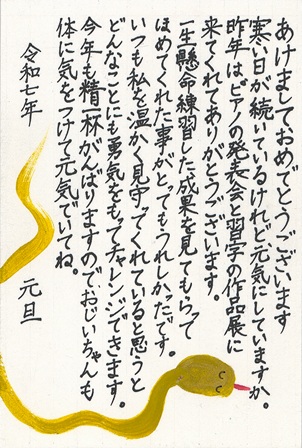 あけましておめでとうございます
寒い日が続いているけれど、元気にしていますか。
昨年は、ピアノの発表会と習字の作品展に
来てくれてありがとうございます。
一生懸命練習した成果を見てもらって
ほめてくれた事がとてもうれしかったです。
いつも私を温かく見守ってくれていると思うと
どんなことにも勇気をもってチャレンジできます。
今年も精一杯がんばりますのでおじいちゃんも
体に気をつけて元気でいてね。
令和七年 元旦